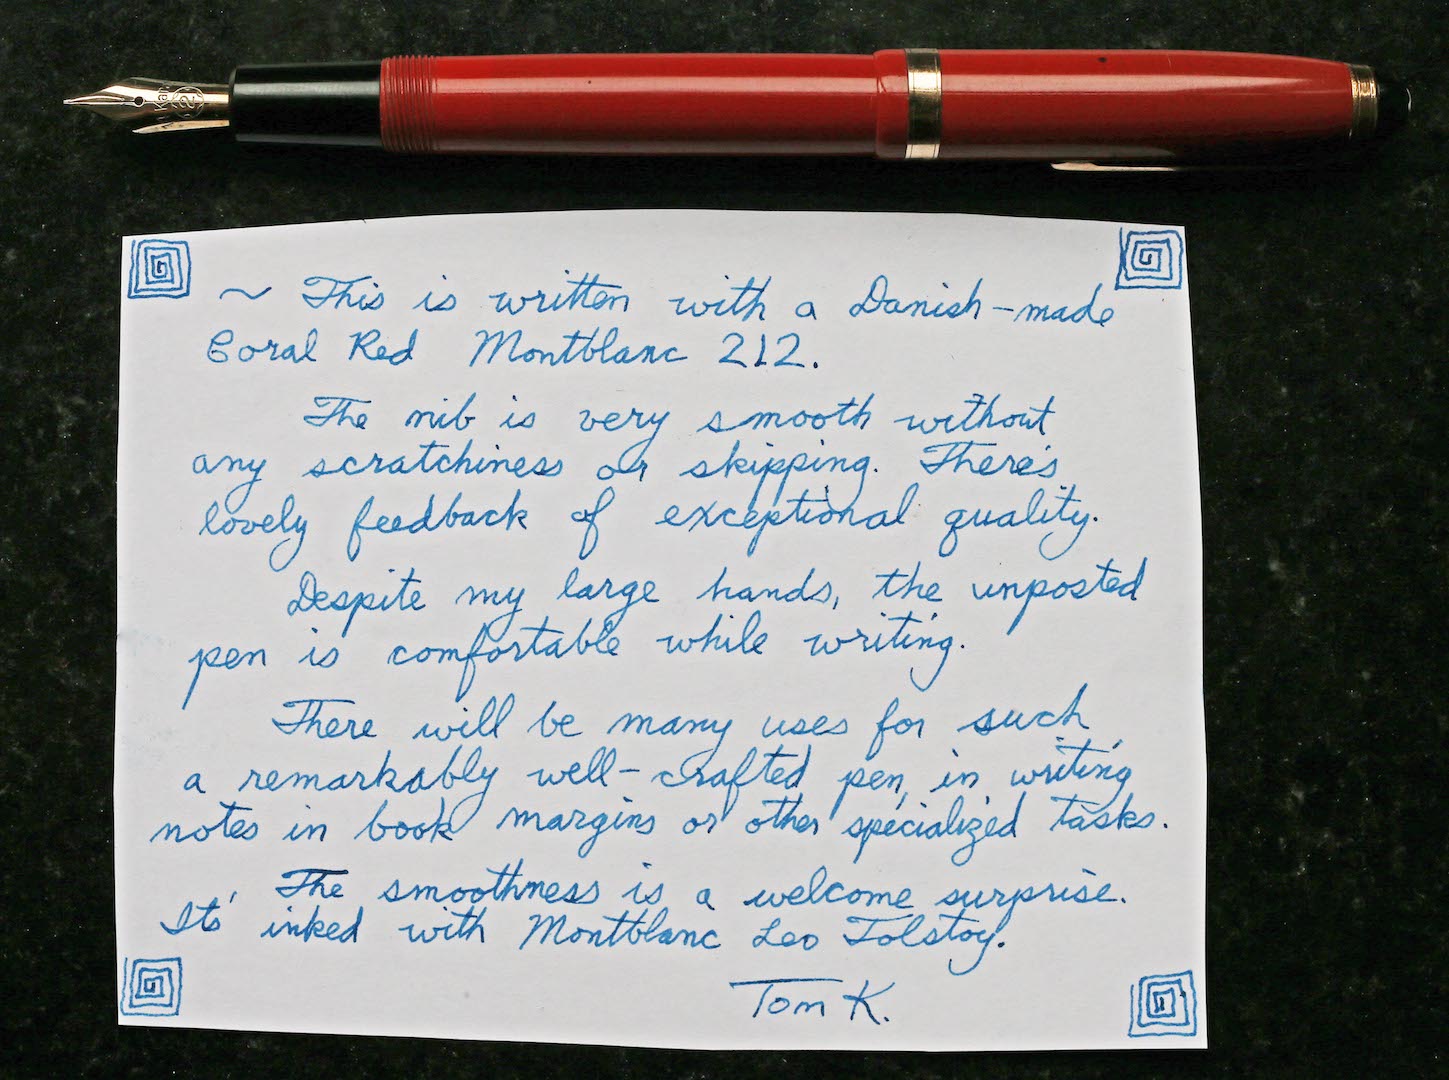 ~ This is written with a Danish-made
Coral Red Montblanc 212.
The nib is very smooth without
any scratchiness or skipping. There's
lovely feedback of exceptional quality.
Despite my large hands, the unposted
pen is comfortable while writing.
There will be many uses for such
a remarkably well-crafted pen, in writing
notes in book margins or other specialized tasks.
The smoothness is a welcome surprise.
It's inked with Montblanc Leo Tolstoy.
Tom K.